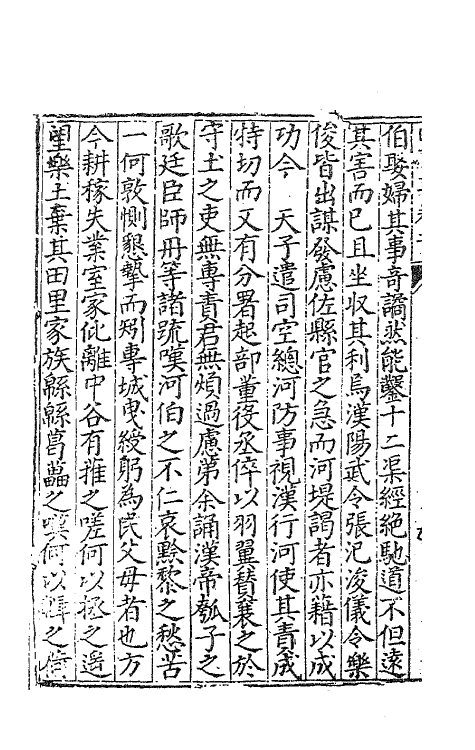 伯娶婦其事奇譎然能鑿十二渠經絶馳道不但遠
其害而已且坐收其利焉漢陽武令張汜浚儀令樂
俊皆出謀發慮佐縣官之急而河堤謁者亦藉以成
功今　天子遣司空總河防事視漢行河使其責成
特切而又有分署起部董役丞倅以羽翼賛襄之於
守土之吏無專責君無煩過慮第余誦漢帝瓠子之
歌廷臣師丹等諸疏嘆河伯之不仁哀黔黎之愁苦
一何敦惻懇摯而矧專城曳綬躬為民父母者也方
今耕稼失業室家仳離中谷有蓷之嗟何以拯之遥
望樂土棄其田里家族緜緜葛藟之嘆何以輯之